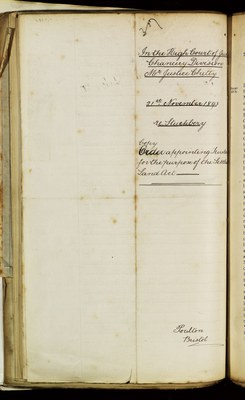 In the High Court of Jus
Chancery Division
Mr Justice Chitty
21st November 1891
re Stuckbery
Copy
Order appointing Trustee
for the purpose of the Settled
Land Act
Bristol